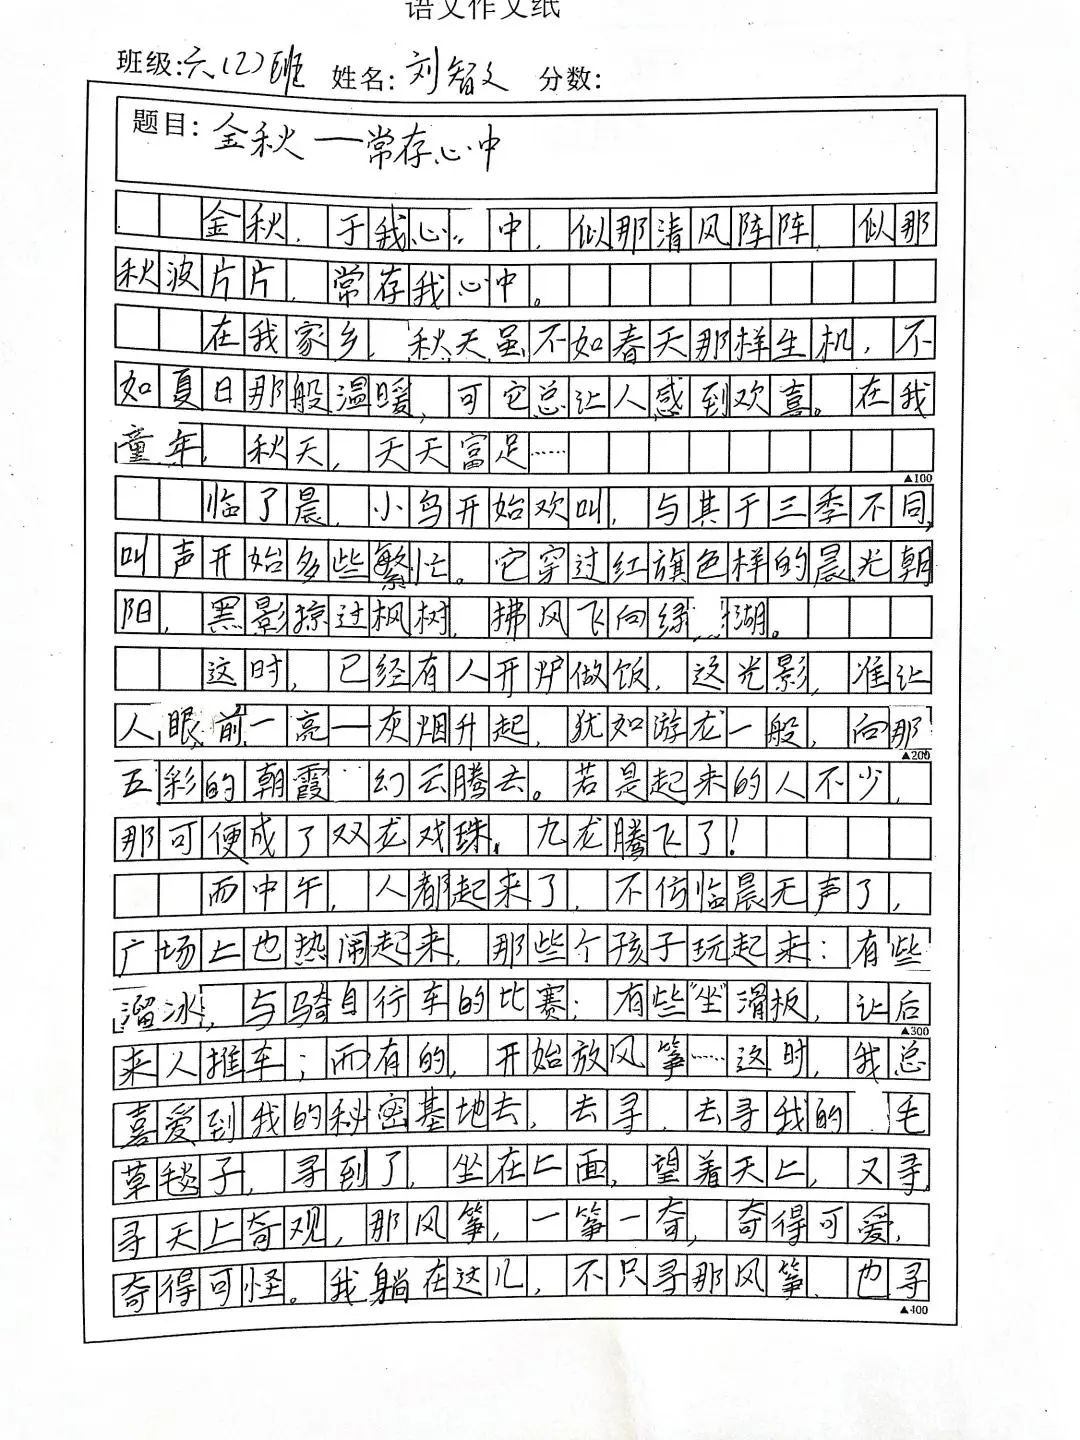 语文作文纸
班级:六(2)班 姓名:刘智文 分数:
题目:金秋——常存心中
金秋,于我心中,似那清风阵阵,似那
秋波片片,常存我心中。
在我家乡,秋天虽不如春天那样生机,不
如夏日那般温暖,可它总让人感到欢喜。在我
童年,秋天,天天富足……
▲100
临了晨,小鸟开始欢叫,与其于三季不同,
叫声开始多些繁忙。它穿过红旗色样的晨光朝
阳,黑影掠过枫树,拂风飞向绿湖。
这时,已经有人开炉做饭,这光影,准让
人眼前一亮—灰烟升起,犹如游龙一般,向那
▲200
五彩的朝霞 幻云腾去。若是起来的人不少,
那可便成了双龙戏珠,九龙腾飞了!
而中午,人都起来了,不似临晨无声了,
广场上也热闹起来,那些个孩子玩起来:有些
溜冰,与骑自行车的比赛;有些"坐"滑板,让后
▲300
来人推车;而有的,开始放风筝……这时,我总
喜爱到我的秘密基地去,去寻,去寻我的 毛
草毯子,寻到了,坐在上面,望着天上,又寻
寻天上奇观,那风筝,一筝一奇,奇得可爱,
奇得可怪。我躺在这儿,不只寻那风筝,也寻
▲400